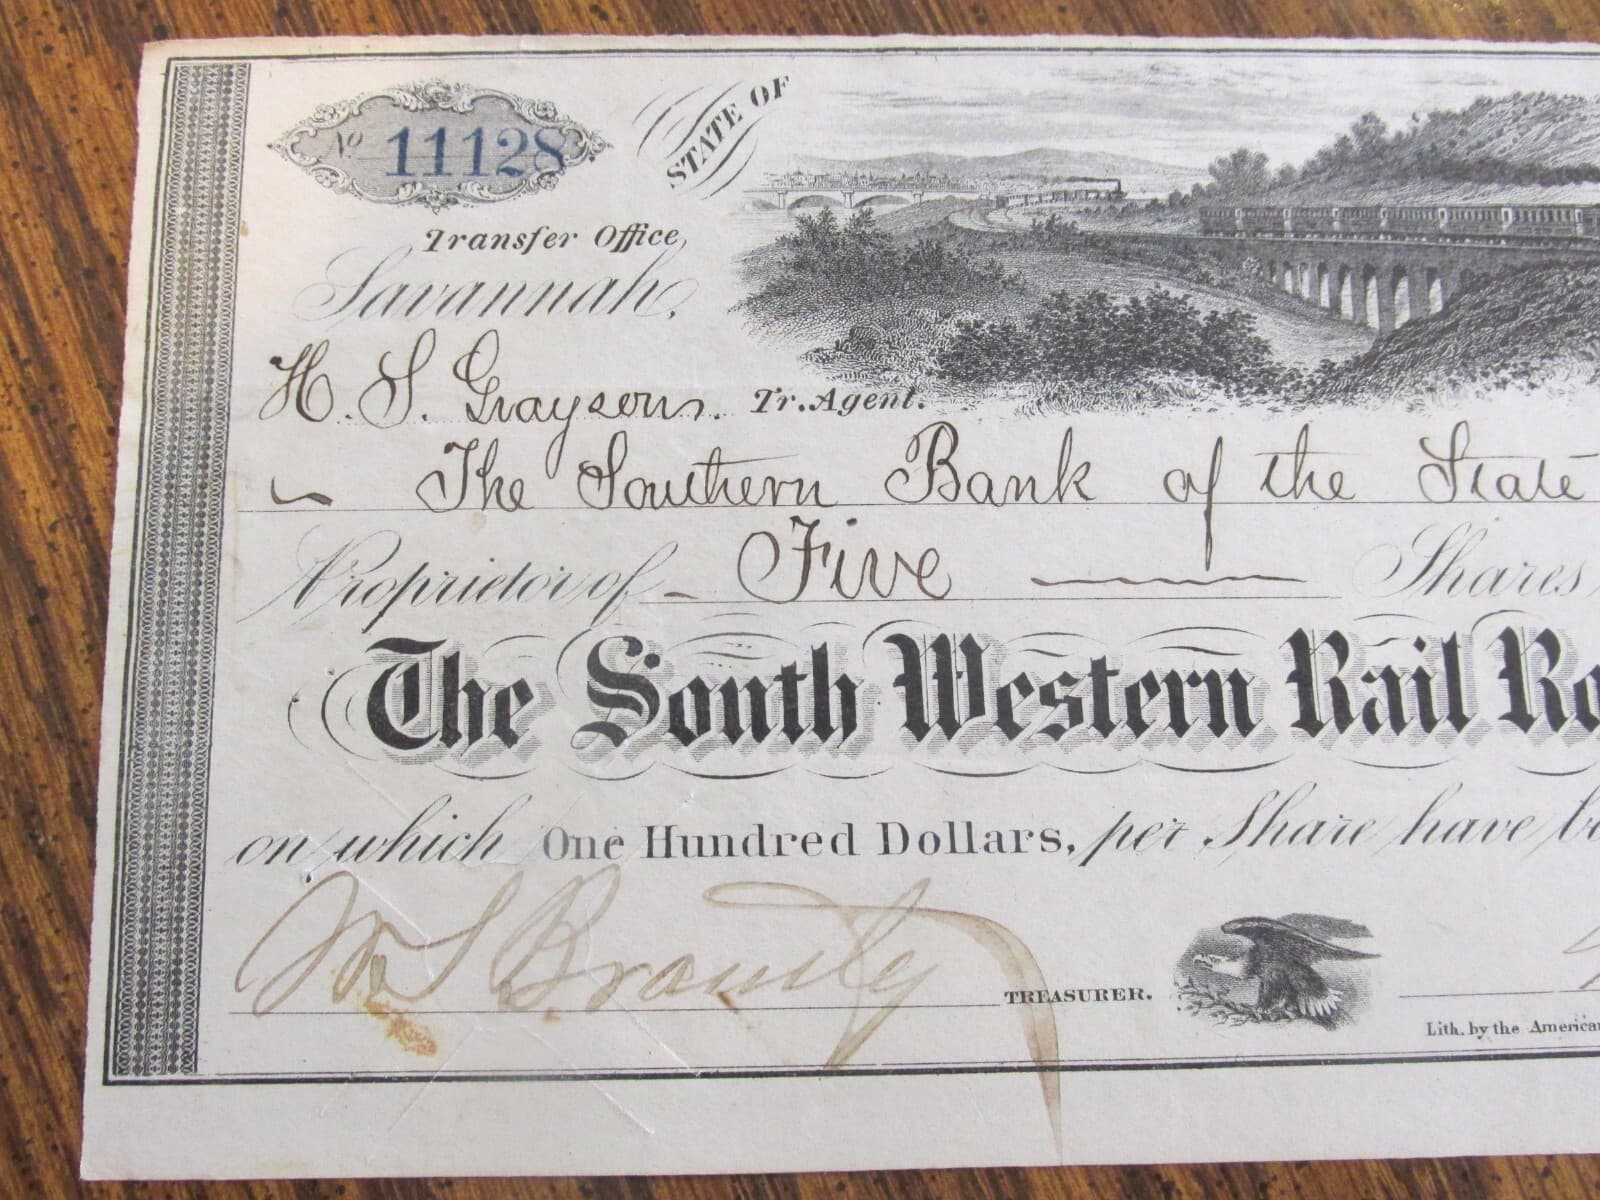 No 11128
STATE OF
Transfer Office,
Savannah,
H. S. Grayson. Tr. Agent.
The Southern Bank of the State
Proprietor of Five Shares
The South Western Rail Ro
on which One Hundred Dollars, per Share have b
Wm S Brantly TREASURER.
Lith. by the America